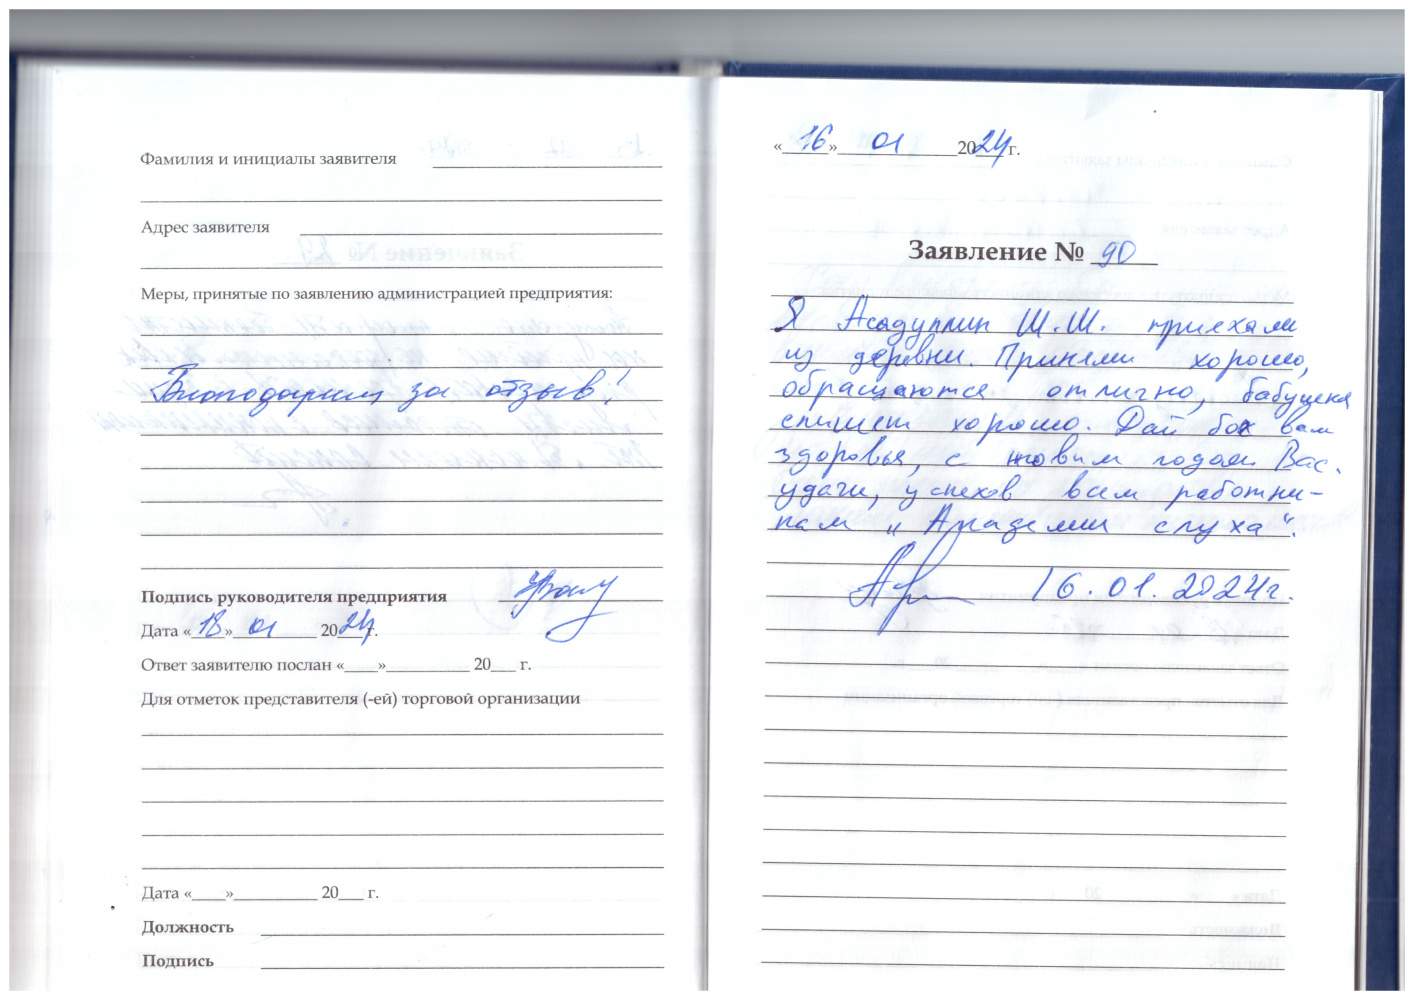 Фамилия и инициалы заявителя
Адрес заявителя
Меры, принятые по заявлению администрацией предприятия:
Благодарим за отзыв!
Подпись руководителя предприятия
Дата «18» 01 2024 г.
Ответ заявителю послан «____»__________ 20___ г.
Для отметок представителя (-ей) торговой организации
Дата «____»__________ 20___ г.
Должность
Подпись
«16» 01 2024 г.
Заявление № 90
Я Асадуллин Ш.Ш. приехали
из деревни. Приняли хорошо,
обращаются отлично, бабушка
слышет хорошо. Дай бох вам
здоровья, с новым годом Вас.
удачи, успехов всем работни-
кам „Академии слуха“.
16.01.2024г.